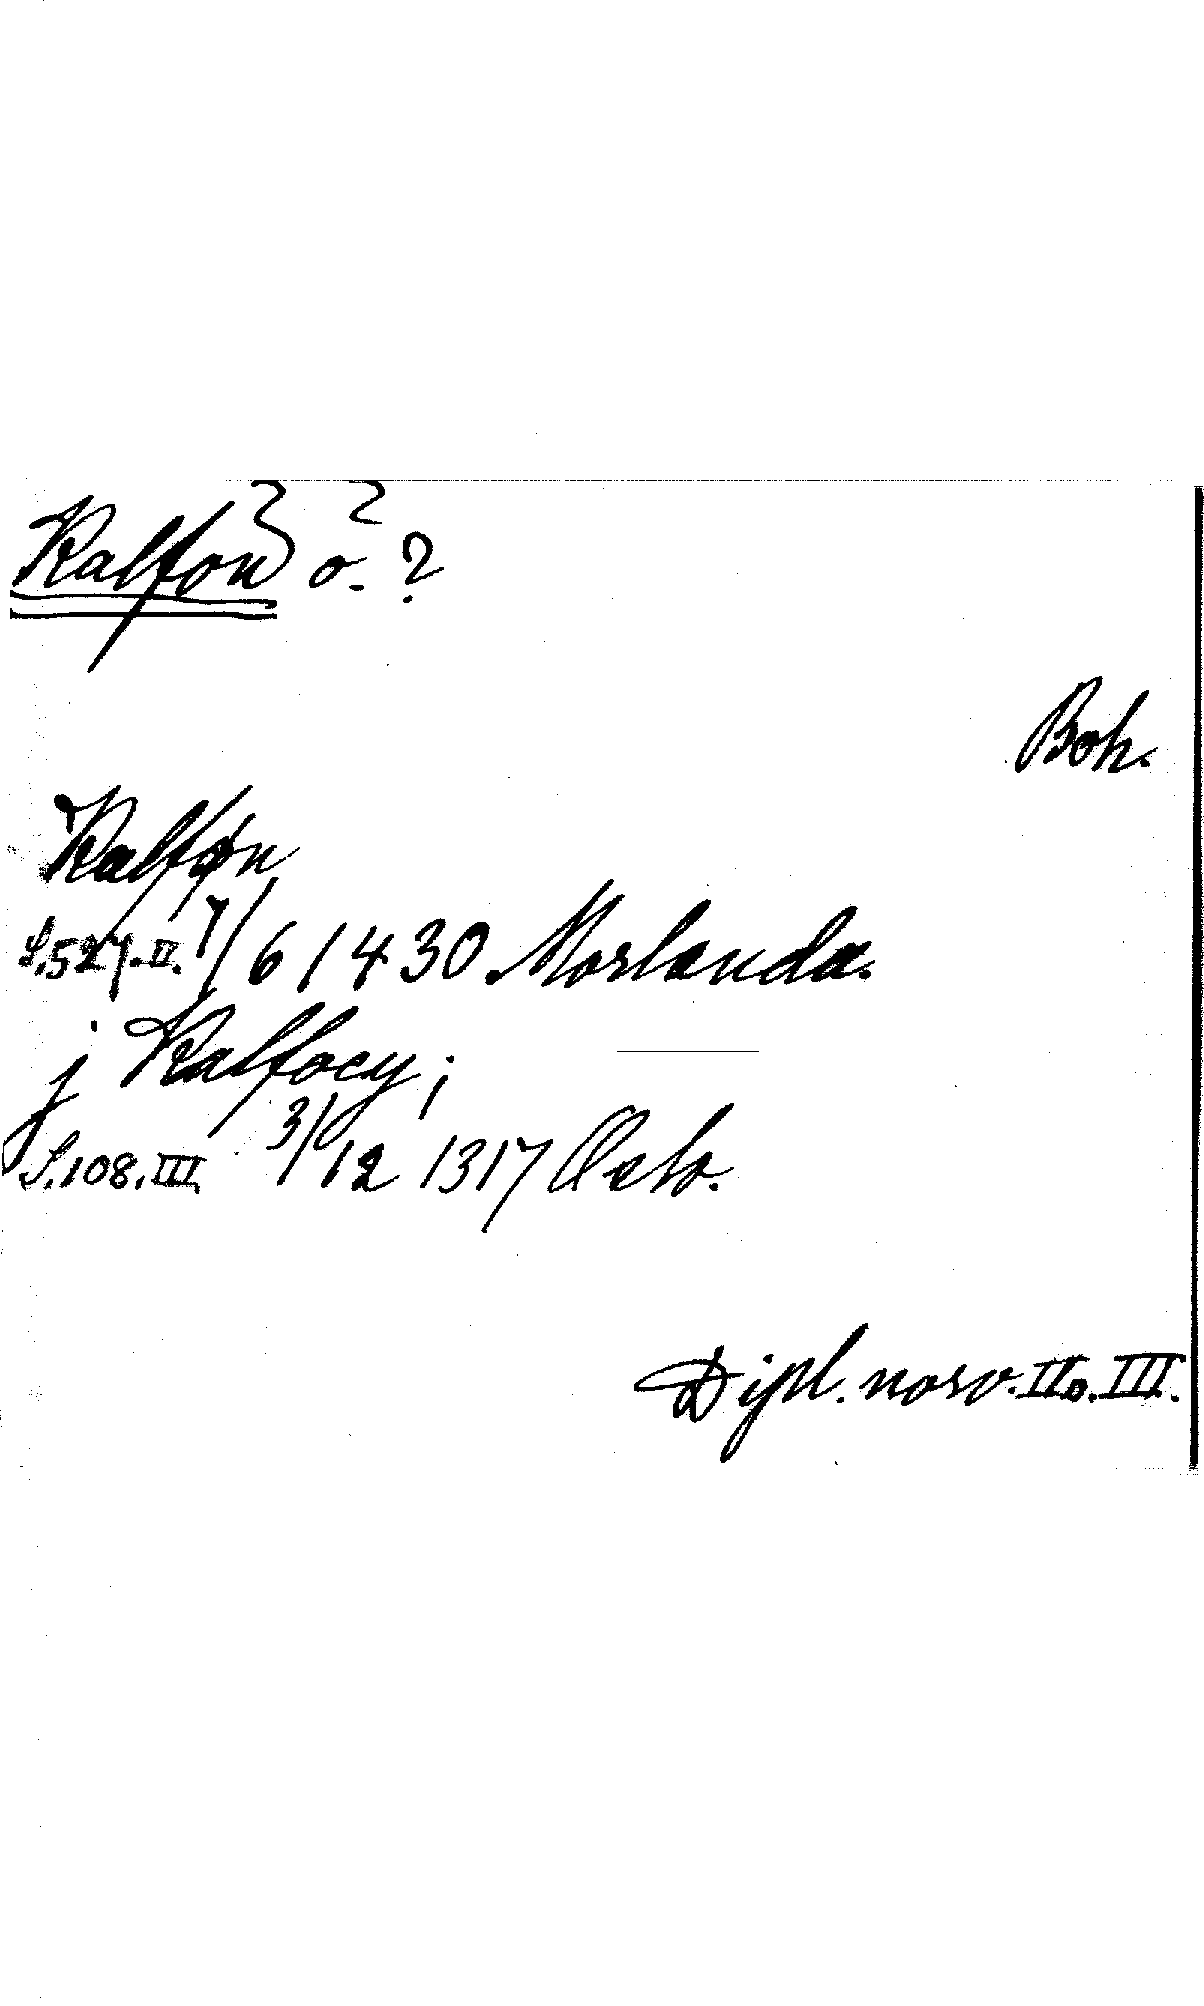 Kalfön ö. ?
Boh.
Kalføn
S.527.II. 7/6 1430 Morlanda.
j Kalfocy;
S.108.III 3/12 1317 Oslo.
Dipl. norv. II o. III.